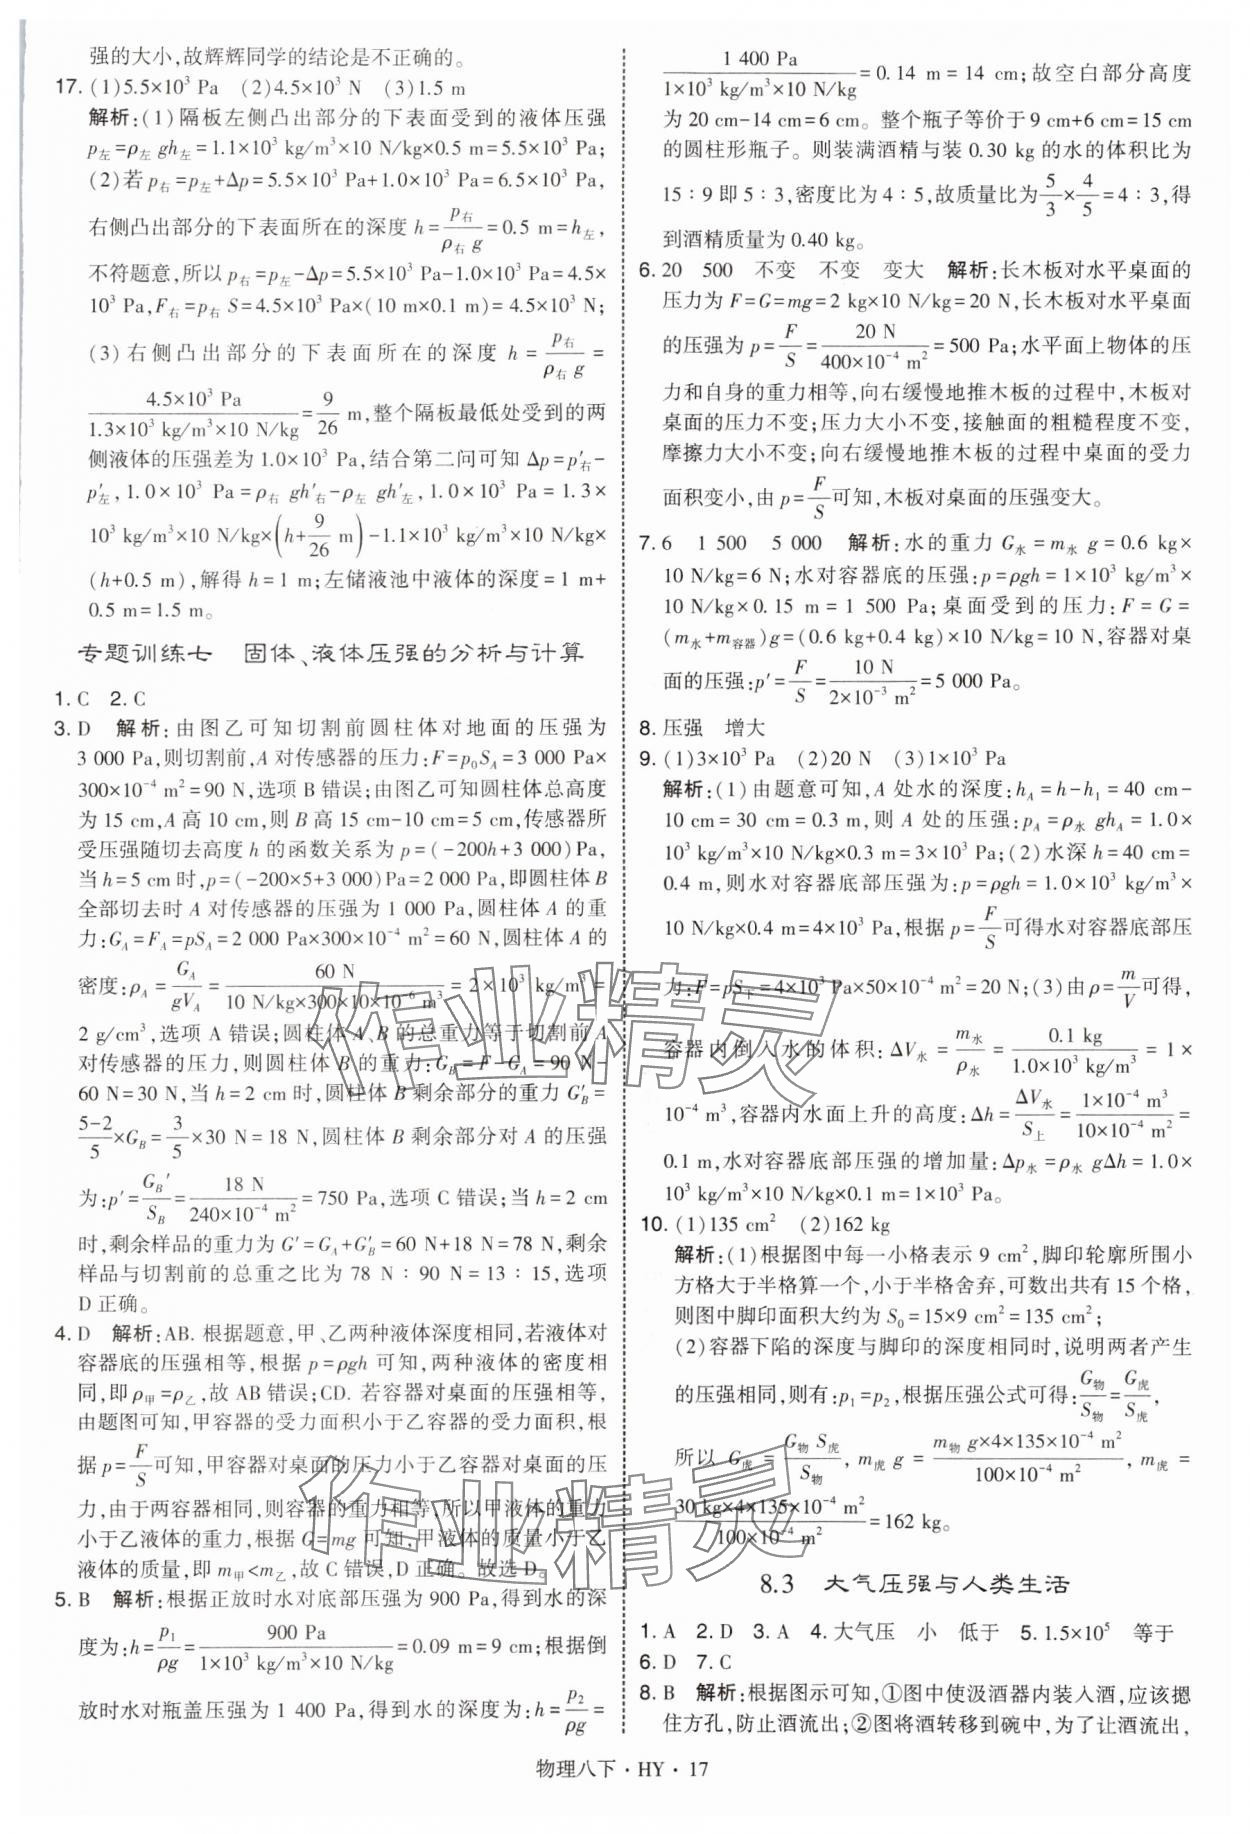 强的大小,故辉辉同学的结论是不正确的。
17. (1)5.5×10³ Pa (2)4.5×10³ N (3)1.5 m
解析:(1)隔板左侧凸出部分的下表面受到的液体压强
p左=ρ左 gh左=1.1×10³ kg/m³×10 N/kg×0.5 m=5.5×10³ Pa;
(2)若 p右=p左+Δp=5.5×10³ Pa+1.0×10³ Pa=6.5×10³ Pa,
右侧凸出部分的下表面所在的深度 h=p右/(ρ右 g)=0.5 m=h左,
不符题意,所以 p右=p左-Δp=5.5×10³ Pa-1.0×10³ Pa=4.5×
10³ Pa,F右=p右 S=4.5×10³ Pa×(10 m×0.1 m)=4.5×10³ N;
(3)右侧凸出部分的下表面所在的深度 h=p右/(ρ右 g)=
4.5×10³ Pa/(1.3×10³ kg/m³×10 N/kg)=9/26 m,整个隔板最低处受到的两
侧液体的压强差为 1.0×10³ Pa,结合第二问可知 Δp=p′右-
p′左,1.0×10³ Pa=ρ右 gh′右-ρ左 gh′左,1.0×10³ Pa=1.3×
10³ kg/m³×10 N/kg×(h+9/26 m)-1.1×10³ kg/m³×10 N/kg×
(h+0.5 m),解得 h=1 m;左储液池中液体的深度=1 m+
0.5 m=1.5 m。
专题训练七 固体、液体压强的分析与计算
1. C 2. C
3. D 解析:由图乙可知切割前圆柱体对地面的压强为
3 000 Pa,则切割前,A 对传感器的压力:F=p₀S_A=3 000 Pa×
300×10⁻⁴ m²=90 N,选项 B 错误;由图乙可知圆柱体总高度
为 15 cm,A 高 10 cm,则 B 高 15 cm-10 cm=5 cm,传感器所
受压强随切去高度 h 的函数关系为 p=(-200h+3 000)Pa,
当 h=5 cm 时,p=(-200×5+3 000)Pa=2 000 Pa,即圆柱体 B
全部切去时 A 对传感器的压强为 1 000 Pa,圆柱体 A 的重
力:G_A=F_A=pS_A=2 000 Pa×300×10⁻⁴ m²=60 N,圆柱体 A 的
密度:ρ_A=G_A/(gV_A)=60 N/(10 N/kg×300×10×10⁻⁶ m³)=2×10³ kg/m³=
2 g/cm³,选项 A 错误;圆柱体 A、B 的总重力等于切割前 A
对传感器的压力,则圆柱体 B 的重力:G_B=F-G_A=90 N-
60 N=30 N,当 h=2 cm 时,圆柱体 B 剩余部分的重力 G′_B=
(5-2)/5×G_B=3/5×30 N=18 N,圆柱体 B 剩余部分对 A 的压强
为:p′=G_B′/S_B=18 N/(240×10⁻⁴ m²)=750 Pa,选项 C 错误;当 h=2 cm
时,剩余样品的重力为 G′=G_A+G′_B=60 N+18 N=78 N,剩余
样品与切割前的总重之比为 78 N∶90 N=13∶15,选项
D 正确。
4. D 解析:AB. 根据题意,甲、乙两种液体深度相同,若液体对
容器底的压强相等,根据 p=ρgh 可知,两种液体的密度相
同,即 ρ甲=ρ乙,故 AB 错误;CD. 若容器对桌面的压强相等,
由题图可知,甲容器的受力面积小于乙容器的受力面积,根
据 p=F/S 可知,甲容器对桌面的压力小于乙容器对桌面的压
力,由于两容器相同,则容器的重力相等,所以甲液体的重力
小于乙液体的重力,根据 G=mg 可知,甲液体的质量小于乙
液体的质量,即 m甲<m乙,故 C 错误,D 正确。故选 D。
5. B 解析:根据正放时水对底部压强为 900 Pa,得到水的深
度为:h=p₁/(ρg)=900 Pa/(1×10³ kg/m³×10 N/kg)=0.09 m=9 cm;根据倒
放时水对瓶盖压强为 1 400 Pa,得到水的深度为:h=p₂/(ρg)=
1 400 Pa/(1×10³ kg/m³×10 N/kg)=0.14 m=14 cm;故空白部分高度
为 20 cm-14 cm=6 cm。整个瓶子等价于 9 cm+6 cm=15 cm
的圆柱形瓶子。则装满酒精与装 0.30 kg 的水的体积比为
15∶9 即 5∶3,密度比为 4∶5,故质量比为 5/3×4/5=4∶3,得
到酒精质量为 0.40 kg。
6. 20 500 不变 不变 变大 解析:长木板对水平桌面的
压力为 F=G=mg=2 kg×10 N/kg=20 N,长木板对水平桌面
的压强为 p=F/S=20 N/(400×10⁻⁴ m²)=500 Pa;水平面上物体的压
力和自身的重力相等,向右缓慢地推木板的过程中,木板对
桌面的压力不变;压力大小不变,接触面的粗糙程度不变,
摩擦力大小不变;向右缓慢地推木板的过程中桌面的受力
面积变小,由 p=F/S 可知,木板对桌面的压强变大。
7. 6 1 500 5 000 解析:水的重力 G水=m水 g=0.6 kg×
10 N/kg=6 N;水对容器底的压强:p=ρgh=1×10³ kg/m³×
10 N/kg×0.15 m=1 500 Pa;桌面受到的压力:F=G=
(m水+m容器)g=(0.6 kg+0.4 kg)×10 N/kg=10 N,容器对桌
面的压强:p′=F/S=10 N/(2×10⁻³ m²)=5 000 Pa。
8. 压强 增大
9. (1)3×10³ Pa (2)20 N (3)1×10³ Pa
解析:(1)由题意可知,A 处水的深度:h_A=h-h₁=40 cm-
10 cm=30 cm=0.3 m,则 A 处的压强:p_A=ρ水 gh_A=1.0×
10³ kg/m³×10 N/kg×0.3 m=3×10³ Pa;(2)水深 h=40 cm=
0.4 m,则水对容器底部压强为:p=ρgh=1.0×10³ kg/m³×
10 N/kg×0.4 m=4×10³ Pa,根据 p=F/S 可得水对容器底部压
力:F=pS下=4×10³ Pa×50×10⁻⁴ m²=20 N;(3)由 ρ=m/V 可得,
容器内倒入水的体积:ΔV水=m水/ρ水=0.1 kg/(1.0×10³ kg/m³)=1×
10⁻⁴ m³,容器内水面上升的高度:Δh=ΔV水/S上=1×10⁻⁴ m³/(10×10⁻⁴ m²)=
0.1 m,水对容器底部压强的增加量:Δp水=ρ水 gΔh=1.0×
10³ kg/m³×10 N/kg×0.1 m=1×10³ Pa。
10. (1)135 cm² (2)162 kg
解析:(1)根据图中每一小格表示 9 cm²,脚印轮廓所围小
方格大于半格算一个,小于半格舍弃,可数出共有 15 个格,
则图中脚印面积大约为 S₀=15×9 cm²=135 cm²;
(2)容器下陷的深度与脚印的深度相同时,说明两者产生
的压强相同,则有:p₁=p₂,根据压强公式可得:G物/S物=G虎/S虎,
所以 G虎=G物 S虎/S物,m虎 g=m物 g×4×135×10⁻⁴ m²/(100×10⁻⁴ m²),m虎=
30 kg×4×135×10⁻⁴ m²/(100×10⁻⁴ m²)=162 kg。
8.3 大气压强与人类生活
1. A 2. D 3. A 4. 大气压 小 低于 5. 1.5×10⁵ 等于
6. D 7. C
8. B 解析:根据图示可知,①图中使汲酒器内装入酒,应该摁
住方孔,防止酒流出;②图将酒转移到碗中,为了让酒流出,
物理八下·HY·17
作业精灵
作业精灵